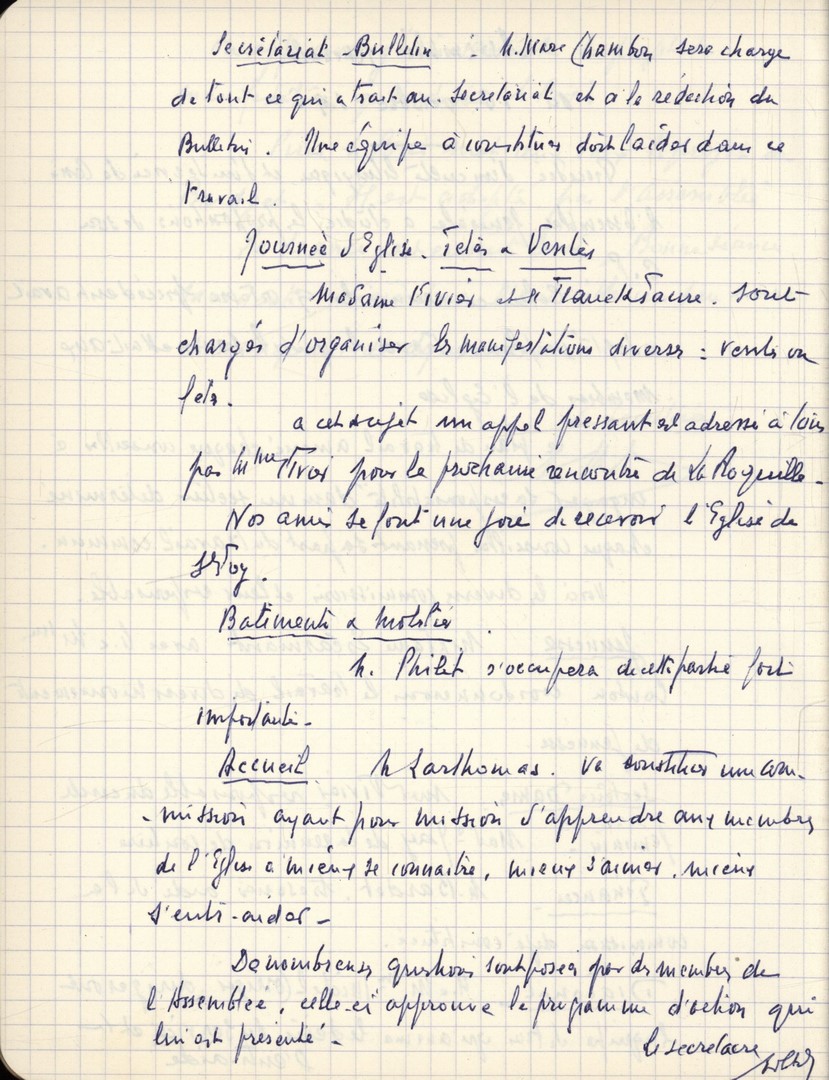 Secrétariat - Bulletin : M. Marc Chambon sera chargé
de tout ce qui a trait au Secrétariat et à la rédaction du
Bulletin. Une équipe à constituer doit l'aider dans ce
travail.
Journée d'Eglise. Fêtes & Ventes
Madame Vivier et M Franck Faure. sont
chargés d'organiser les manifestations diverses : ventes ou
fête.
a cet sujet un appel pressant est adressé à tous
par Mme Vivier pour la prochaine rencontre de La Roquille.
Nos amis se font une joie de recevoir l'Eglise de
Ste Foy.
Batiments & mobilier
M. Philit s'occupera de cette partie fort
importante.
Accueil M Larthomas. va constituer une com-
-mission ayant pour mission d'apprendre aux membres
de l'Eglise à mieux se connaitre, mieux s'aimer, mieux
s'entr-aider -
De nombreuses questions sont posées par des membres de
l'Assemblée, celle-ci approuve le programme d'action qui
lui est présenté -
le secretaire